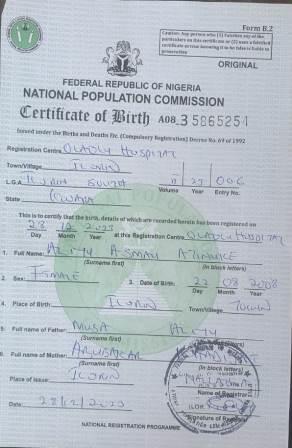 Form B.2
Caution: Any person who (1) falsifies any of the particulars on this certificate or (2) uses a falsified certificate knowing it to be false is liable to prosecution
ORIGINAL
FEDERAL REPUBLIC OF NIGERIA
NATIONAL POPULATION COMMISSION
Certificate of Birth A08 35865254
Issued under the Births and Deaths Etc. (Compulsory Registration) Decree No. 69 of 1992
Registration Centre OLADLY HOSPITAL
Town/Village ILORIN
L.G.A ILORIN SOUTH 11 23 006
Volume Year Entry No.
State KWARA
This is to certify that the birth, details of which are recorded herein has been registered on
28 12 2023 at this Registration Centre OLADLY HOSPITAL
Day Month Year
1. Full Name: ALIYU ASMAU
(Surname first) (in block letters)
2. Sex: FEMALE 3. Date of Birth: 22 08 2008
Day Month Year
4. Place of Birth: ILORIN TOWN
Town/Village
5. Full name of Father: MUSA ALIYU
(Surname first) (in block letters)
6. Full name of Mother: ABUBAKAR
(Surname first) (in block letters)
Place of Issue: ILORIN
Name of Registrar
Date: 28/12/2023
Signature of
NATIONAL REGISTRATION PROGRAMME